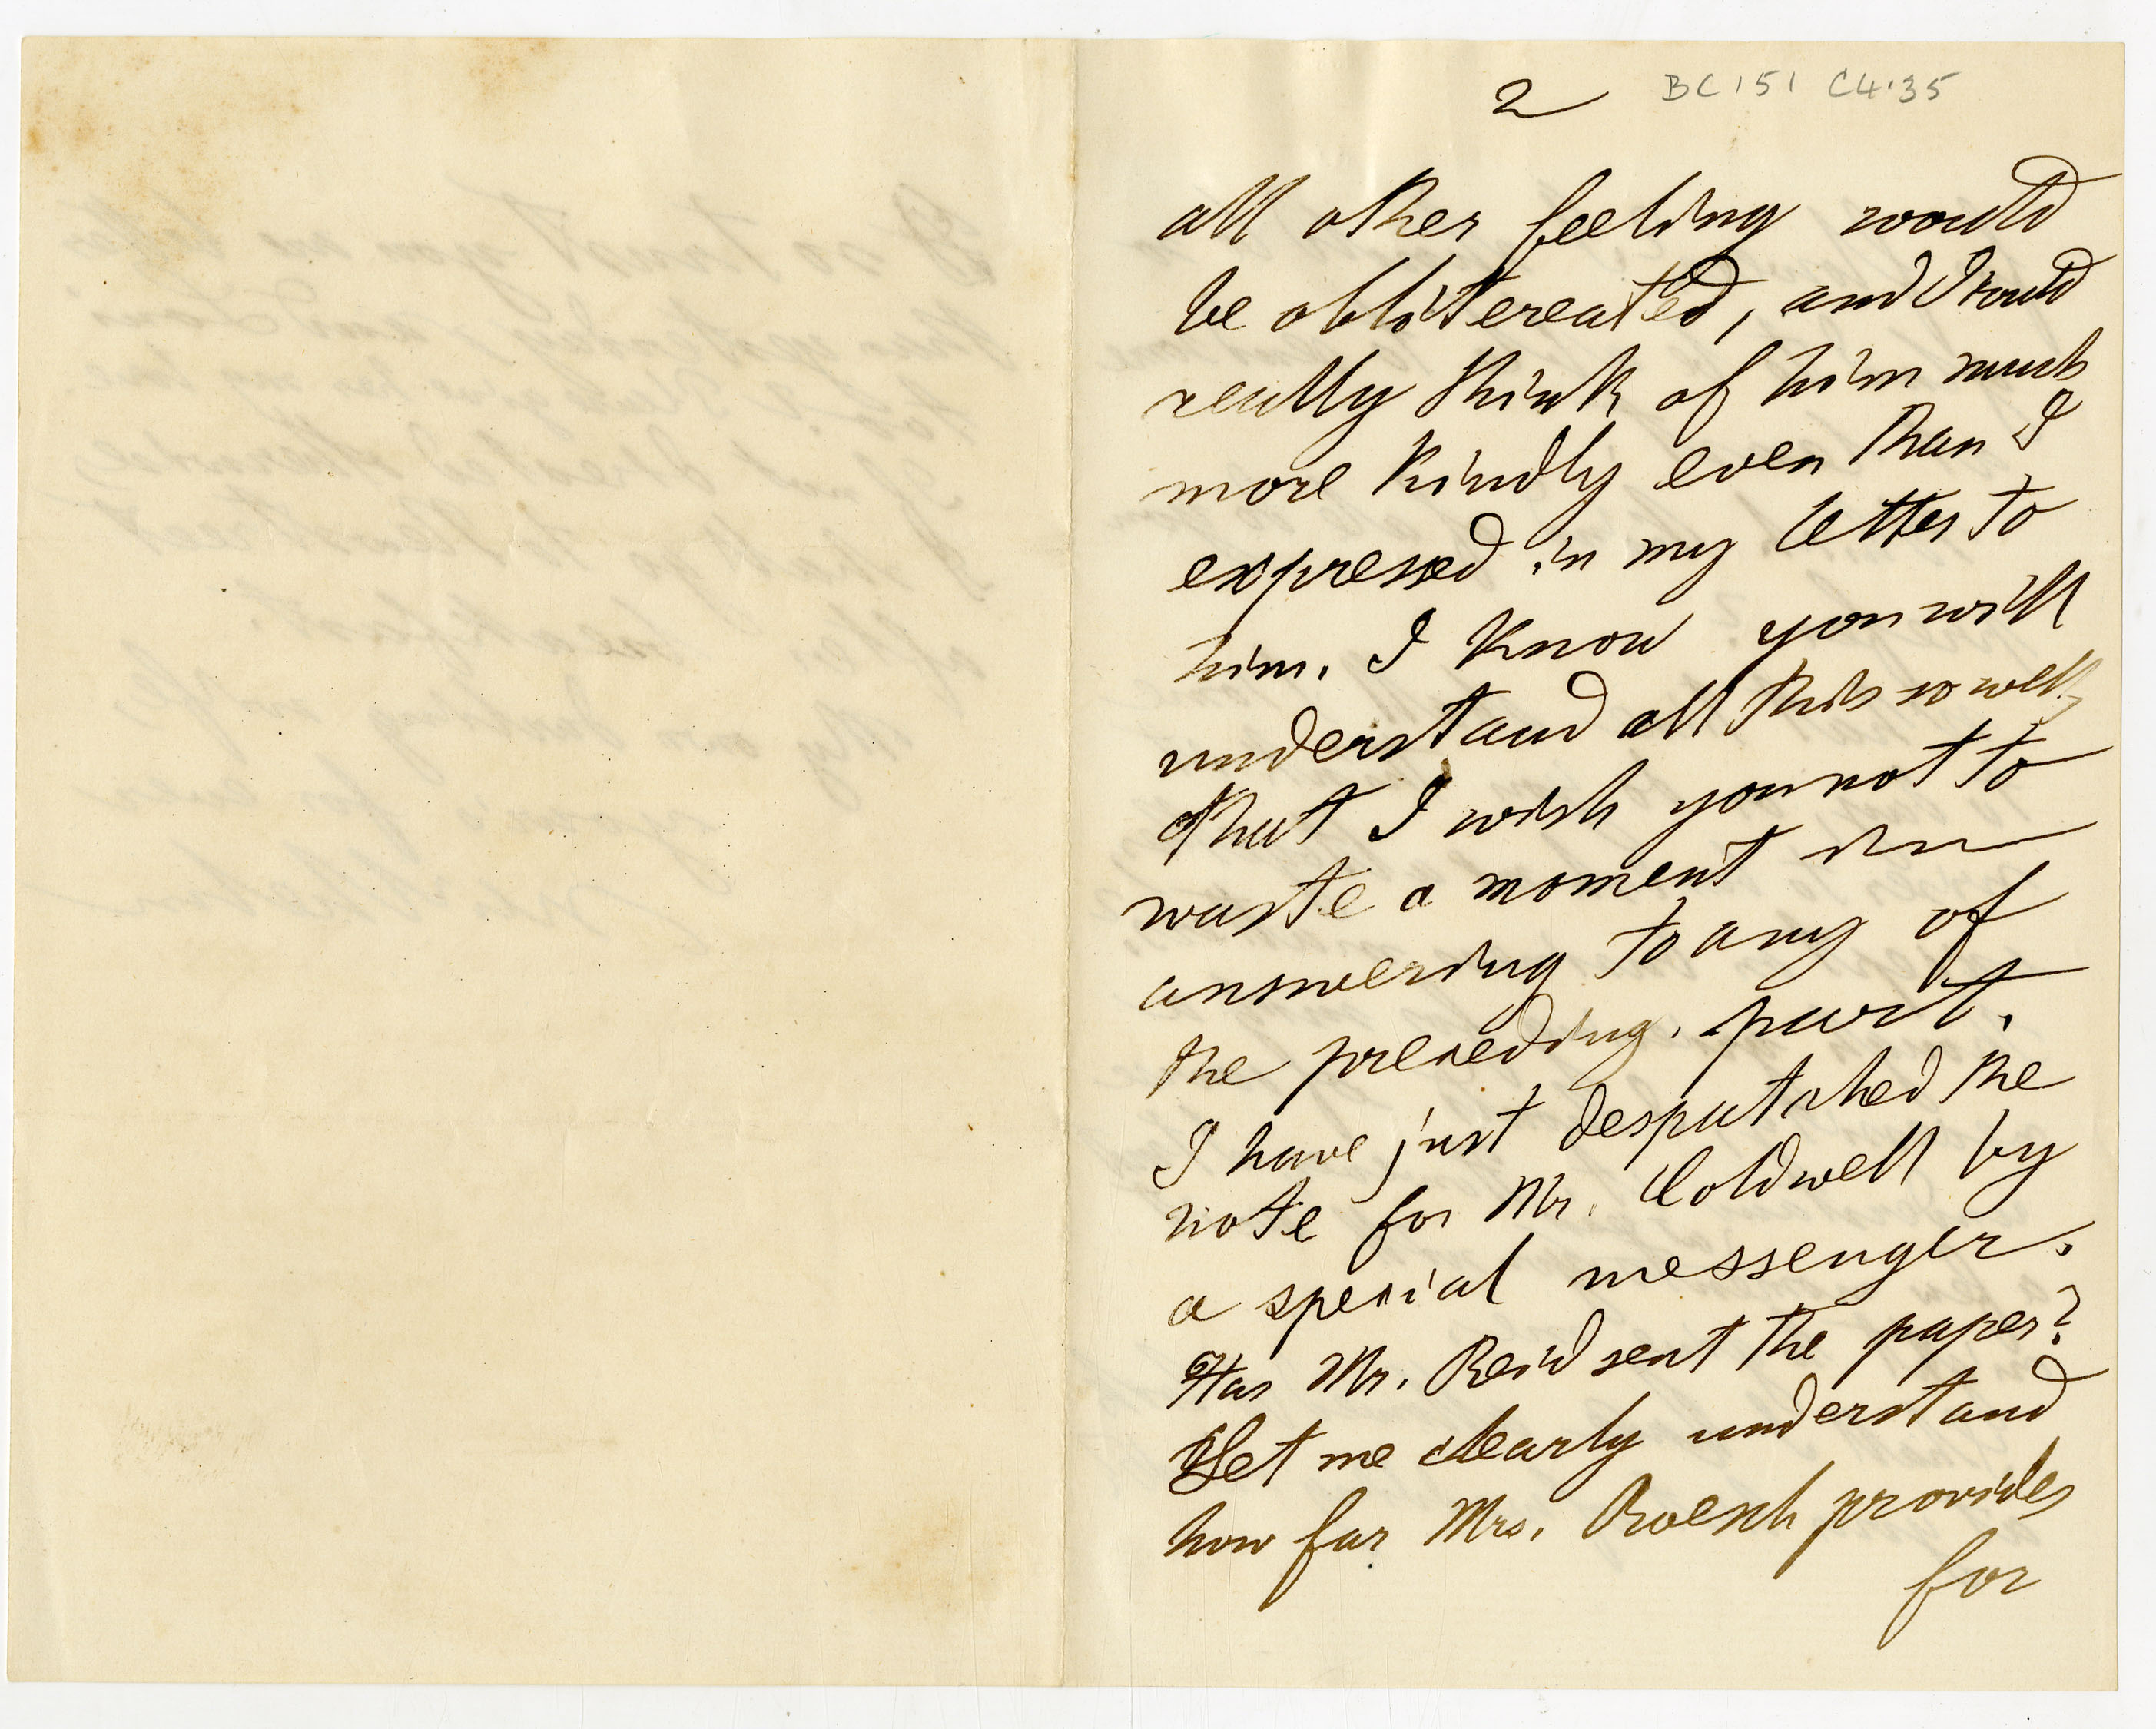 2 BC151 C4.35
all other feeling would
be oblitereated, and I could
really think of him much
more kindly even than I
expressed in my letter to
him. I know you will
understand all this so well,
that I wish you not to
waste a moment in
answering to any of
the preceding part.
I have just despatched the
note for Mr. Coldwell by
a special messenger.
Has Mr. Reid sent the paper?
Let me clearly understand
how far Mrs. Roesch provides
for